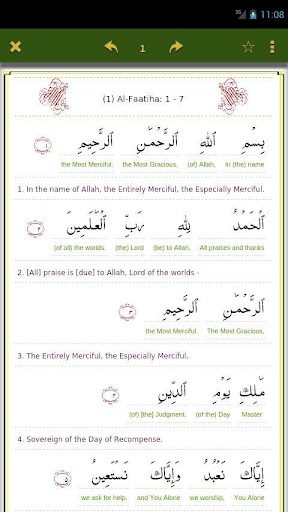 3G 11:08
1
(1) Al-Faatiha: 1 - 7
بِسْمِ ٱللَّهِ ٱلرَّحْمَـٰنِ ٱلرَّحِيمِ ١
the Most Merciful. the Most Gracious, (of) Allah, In (the) name
1. In the name of Allah, the Entirely Merciful, the Especially Merciful.
ٱلْحَمْدُ لِلَّهِ رَبِّ ٱلْعَـٰلَمِينَ ٢
(of all) the worlds. (the) Lord (be) to Allah, All praises and thanks
2. [All] praise is [due] to Allah, Lord of the worlds -
ٱلرَّحْمَـٰنِ ٱلرَّحِيمِ ٣
the Most Merciful. The Most Gracious,
3. The Entirely Merciful, the Especially Merciful,
مَـٰلِكِ يَوْمِ ٱلدِّينِ ٤
(of) [the] Judgment. (of the) Day Master
4. Sovereign of the Day of Recompense.
إِيَّاكَ نَعْبُدُ وَإِيَّاكَ نَسْتَعِينُ ٥
we ask for help. and You Alone we worship, You Alone